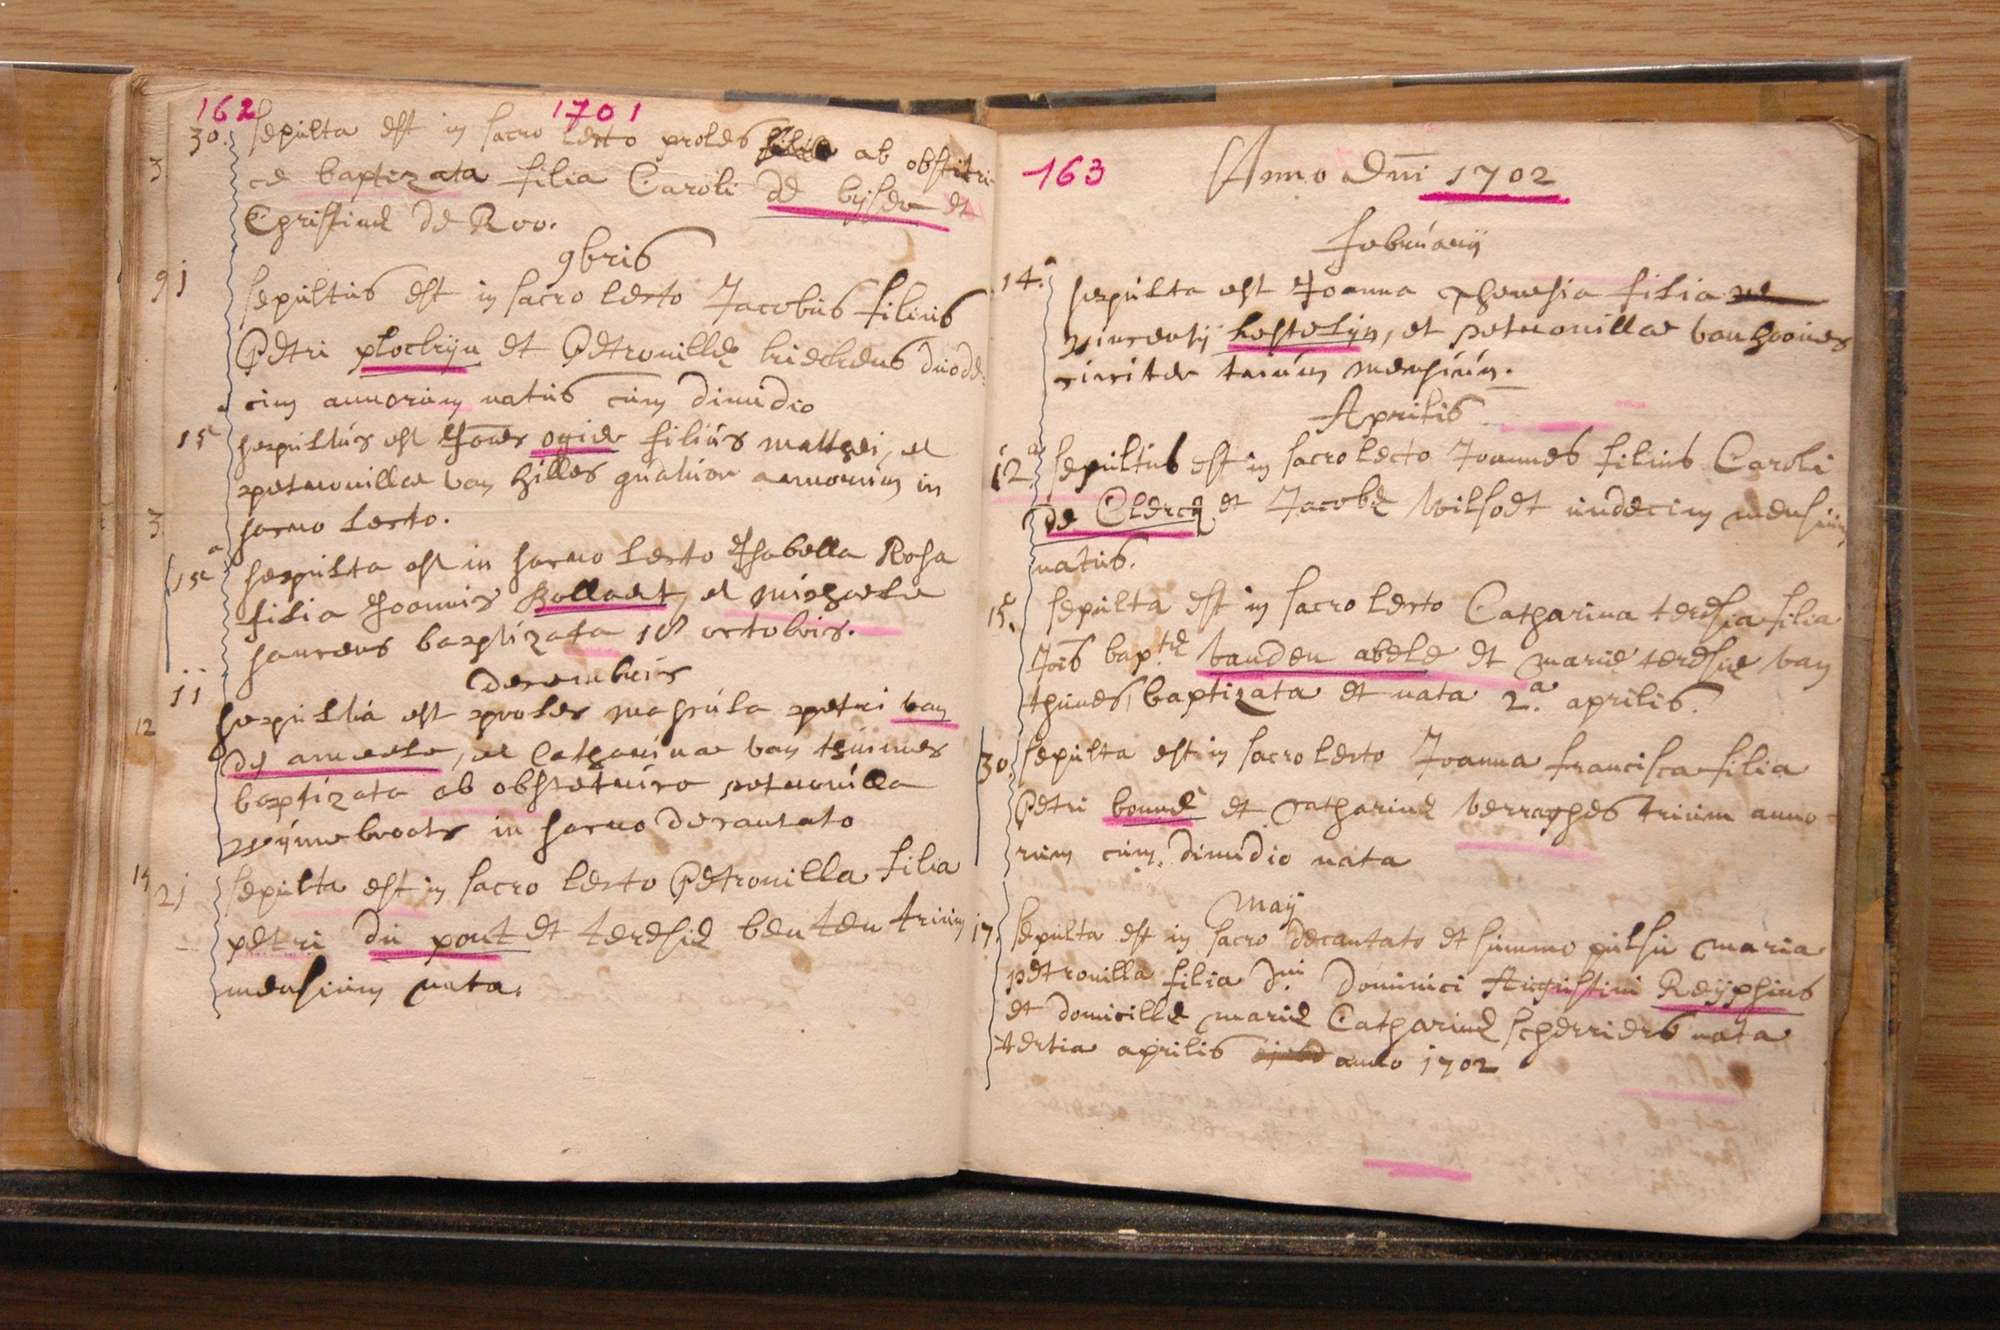 162 1701
30. sepulta est in sacro lecto proles ab obstitri
3 ce baptizata filia Caroli de byser et
Christinae de Roo.
9bris
9 j sepultus est in sacro lecto Jacobus filius
Petri plockyn et Petronillae duode-
cim annorum natus cum dimidio
15a sepultus est Joes ogier filius matthei, et
petronillae van hilles quatuor annorum in
sacro lecto.
3
15a sepulta est in sacro lecto Isabella Rosa
filia Joannis Kollaert, et
baptizata 18 octobris.
decembris
11 sepulta est proles mascula petri van
12 de et Catharinae van thuines
baptizata ab obstetrice petronilla
in sacro decantato
14
21 sepulta est in sacro lecto Petronilla filia
petri du pont et teresiae benten trium
mensium nata.
163 Anno Dni 1702
februarij
14a sepulta est Joanna Theresia filia
vincentij kestelijn, et petronillae
circiter trium mensium.
Aprilis
12a sepultus est in sacro lecto Joannes filius Caroli
de Clercq et Jacobae Wilsoet undecim mensium
natus.
15. sepulta est in sacro lecto Catharina teresia filia
Jois baptae vanden abele et mariae teresiae van
thuines baptizata et nata 2a aprilis.
30. sepulta est in sacro lecto Joanna francisca filia
Petri bonne et Catharinae Verraghes trium anno
rum cum dimidio nata
Maij
17. sepulta est in sacro decantato et summo pulsu maria
petronilla filia dni Dominici Augustini Reyphins
et domicillae mariae Catharinae scherriers nata
tertia aprilis anno 1702